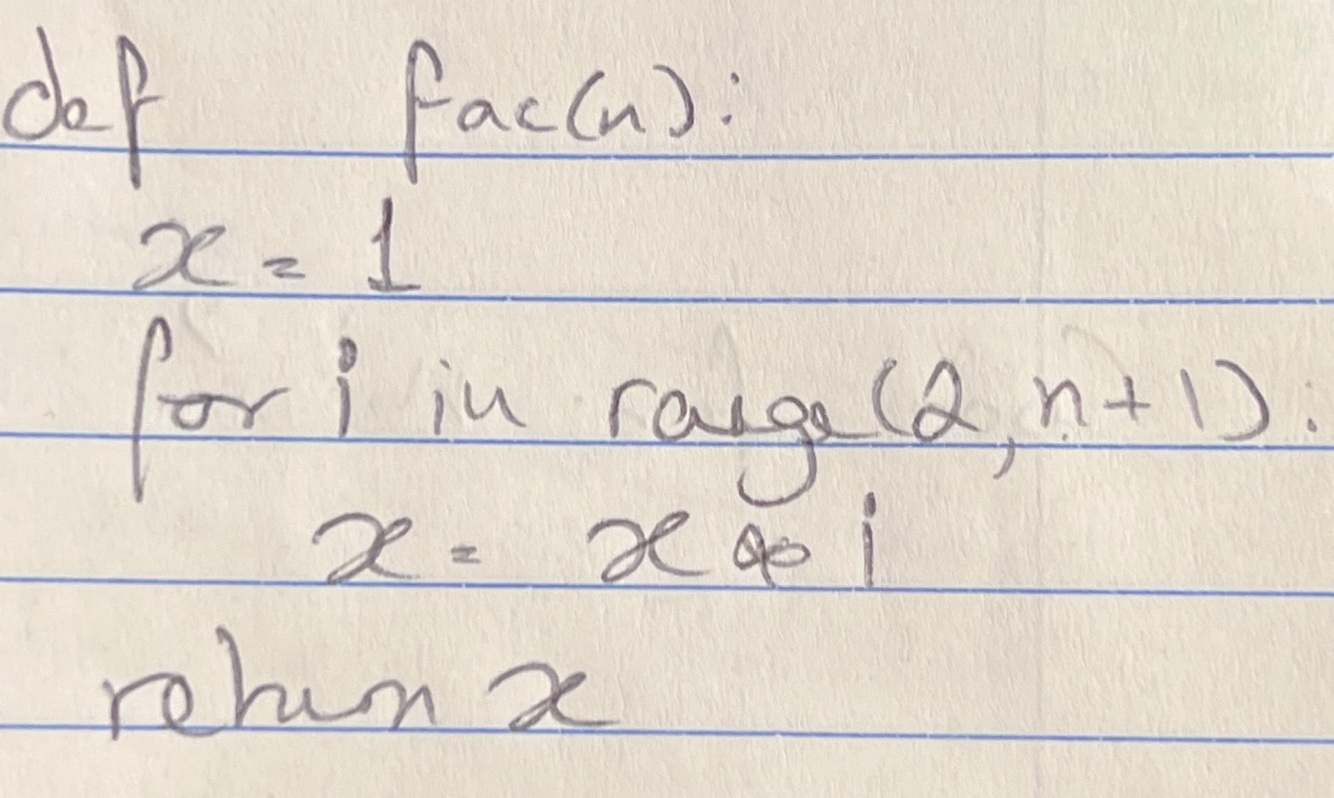 def fac(n):
x = 1
for i in range(2, n+1):
x = x * i
return x